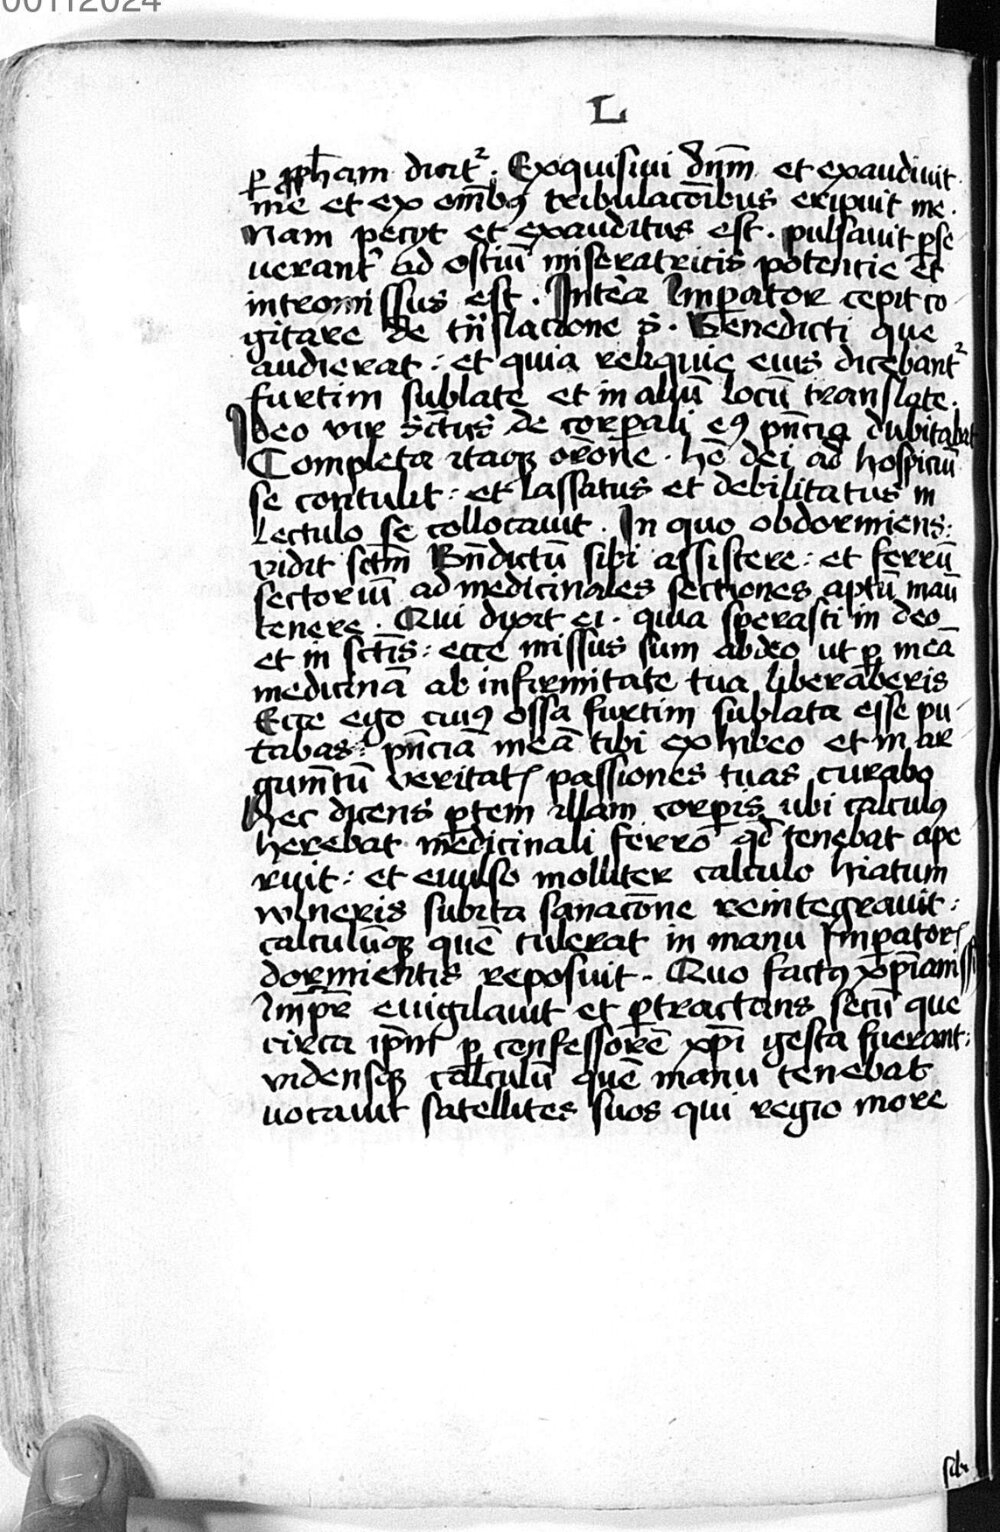 00112024
L
ꝑ ꝓph̅am dicit᷑. Exquisiui dn̅m et exaudiuit
me et ex om̅ibꝰ tribulaco̅ibus eripuit me.
Nam peciit et exauditus est. pulsauit ꝑse
uerant᷑ ad ostiu̅ miseratricis potencie et
intromissus est. Inte̅a Imꝑator cepit co
gitare de tn̅slacione s̅. Benedicti que
audierat: et quia reliquie eius dicebant᷑
furtim sublate et in aliu̅ locu̅ translate.
Ideo vir sc̅tus de corꝑali eꝰ pn̅cia dubitabat
Completa itaqꝫ oro̅ne. ho̅ dei ad hospiciu̅
se contulit: et lassatus et debilitatus in
lectulo se collocauit. In quo obdormiens:
vidit sct̅m Bn̅dictu̅ sibi assistere: et ferru̅
sectoriu̅ ad medicinales sectiones aptu̅ manu̅
tenere. Qui dixit ei. quia sperasti in deo
et in sct̅is: ecce missus sum abdeo ut ꝑ mea̅
medicina̅ ab infirmitate tua liberaberis
Ecce ego cuiꝰ ossa furtim sublata esse pu
tabas: pn̅cia̅ mea̅ tibi exhibeo et in ar
gume̅tu̅ veritatꝭ passiones tuas curabo
Hec dicens ꝑtem illam corꝑis ubi calculꝰ
herebat medicinali ferro qd̅ tenebat ape
ruit: et euulso molliter calculo hiatum
wlneris subita sanaco̅ne reintegrauit:
calculu̅qꝫ que̅ tulerat in manu Imꝑatorꝭ
dormientis reposuit. Quo factꝰ xp̅ianiss
Imꝑr̅ euigilauit et ꝑtractans secu̅ que
circa ip̅m ꝑ confessore̅ xp̅i gesta fuerant:
vidensqꝫ calculu̅ que̅ manu tenebat
uocauit satellites suos qui regio more
sibi